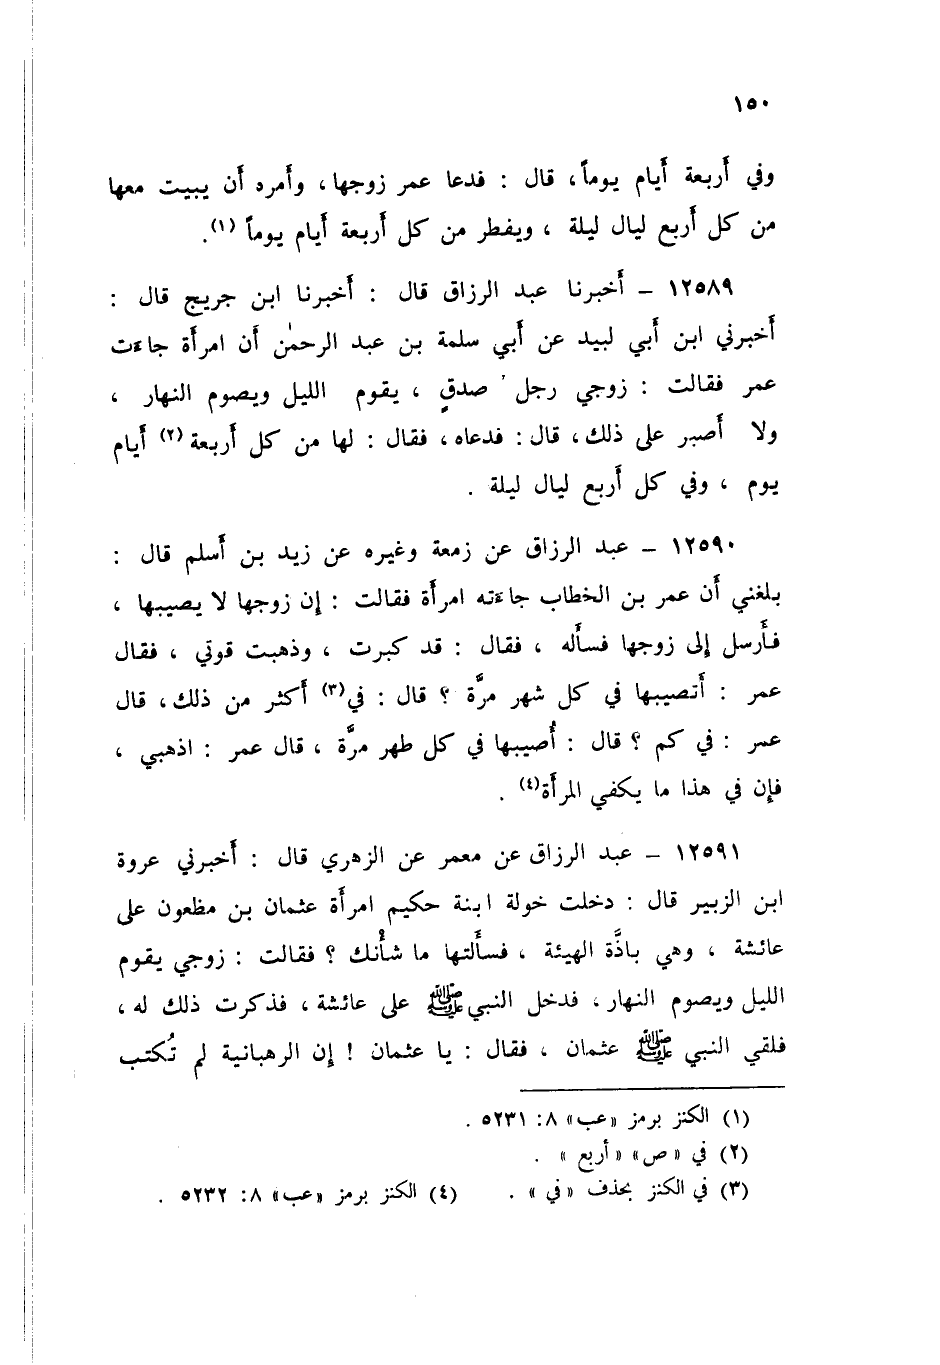 ١٥٠
وفي أَربعة أَيام يوماً، قال : فدعا عمر زوجها، وأَمره أَن يبيت معها
من كل أَربع ليال ليلة ، ويفطر من كل أَربعة أَيام يوماً (١).
١٢٥٨٩ ــ أَخبرنا عبد الرزاق قال : أَخبرنا ابن جريج قال :
أَخبرني ابن أَبي لبيد عن أَبي سلمة بن عبد الرحمٰن أَن امرأَة جاءَت
عمر فقالت : زوجي رجل صدقٍ ، يقوم الليل ويصوم النهار ،
ولا أَصبر على ذلك، قال: فدعاه، فقال : لها من كل أَربعة (٢) أَيام
يوم ، وفي كل أَربع ليال ليلة .
١٢٥٩٠ ــ عبد الرزاق عن زمعة وغيره عن زيد بن أَسلم قال :
بلغني أَن عمر بن الخطاب جاءَته امرأَة فقالت : إِن زوجها لا يصيبها ،
فأَرسل إِلى زوجها فسأَله ، فقال : قد كبرت ، وذهبت قوتي ، فقال
عمر : أَتصيبها في كل شهر مرَّة ؟ قال : في(٣) أَكثر من ذلك، قال
عمر : في كم ؟ قال : أُصيبها في كل طهر مرَّة ، قال عمر : اذهبي ،
فإِن في هذا ما يكفي المرأَة(٤) .
١٢٥٩١ ــ عبد الرزاق عن معمر عن الزهري قال : أَخبرني عروة
ابن الزبير قال : دخلت خولة ابنة حكيم امرأَة عثمان بن مظعون على
عائشة ، وهي باذَّة الهيئة ، فسأَلتها ما شأْنك ؟ فقالت : زوجي يقوم
الليل ويصوم النهار، فدخل النبي ﷺ على عائشة ، فذكرت ذلك له ،
فلقي النبي ﷺ عثمان ، فقال : يا عثمان ! إِن الرهبانية لم تُكتب
(١) الكنز برمز «عب» ٨: ٥٢٣١ .
(٢) في «ص» «أربع» .
(٣) في الكنز بحذف «في» . (٤) الكنز برمز «عب» ٨: ٥٢٣٢ .